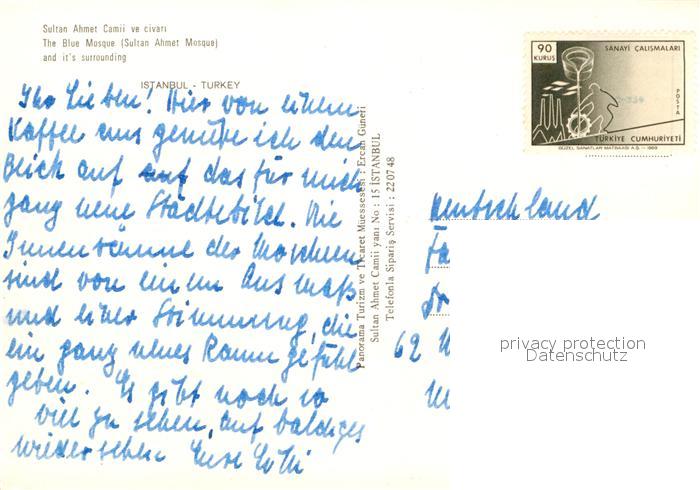 Sultan Ahmet Camii ve civarı
The Blue Mosque (Sultan Ahmet Mosque)
and it's surrounding
ISTANBUL - TURKEY
Ihr Lieben! Hier von einem
Kaffee aus genieße ich den
Blick auf das für mich
ganz neue Städtebild. Die
Innenräume der Moscheen
sind von einem Ausmaß
und einer Stimmung, die
ein ganz neues Raumgefühl
geben. Es gibt noch so
viel zu sehen, auf baldiges
wiedersehen Eure
Panorama Turizm ve Ticaret Müessesesi : Ercan Güneri
Sultan Ahmet Camii yanı No : 15 İSTANBUL
Telefonla Sipariş Servisi : 22 07 48
90
KURUŞ
SANAYİ ÇALIŞMALARI
POSTA
TÜRKİYE CUMHURİYETİ
GÜZEL SANATLAR MATBAASI A.Ş. - 1969
Deutschland
Fa
62 W
privacy protection
Datenschutz